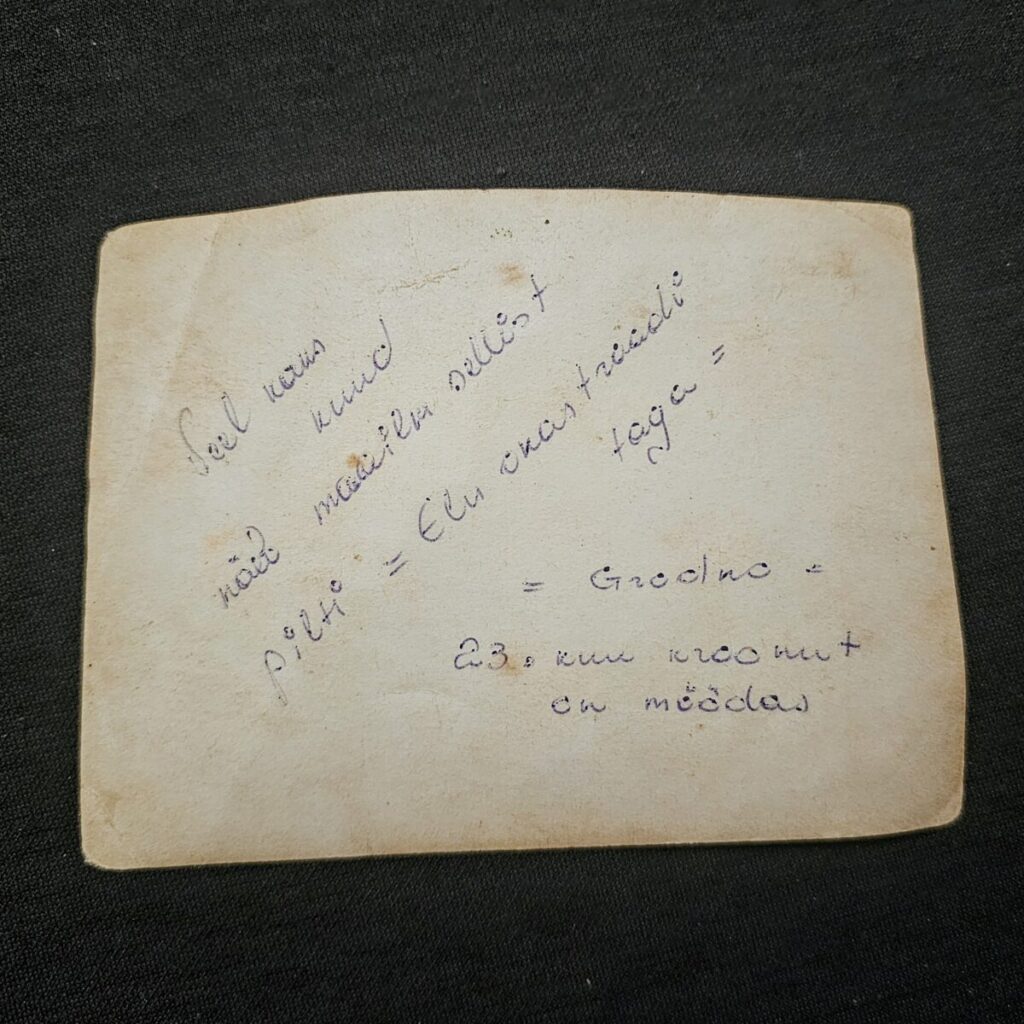 Veel kaks
kuud
näeb maailm sellist
pilti = Elu okastraadi
taga =
= Grodno =
23. kuu kroonut
on möödas